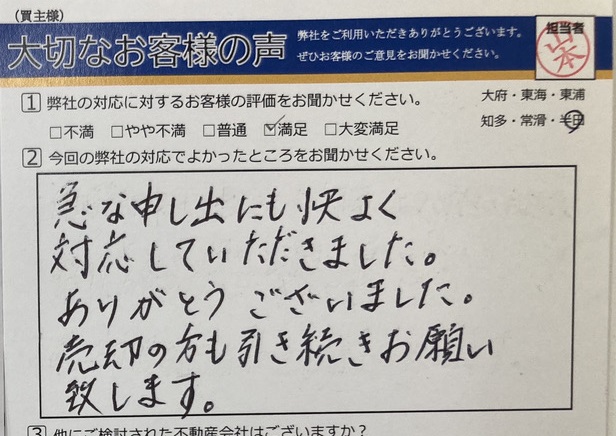 (買主様)
大切なお客様の声
弊社をご利用いただきありがとうございます。
ぜひお客様のご意見をお聞かせください。
担当者
山本
1 弊社の対応に対するお客様の評価をお聞かせください。
大府・東海・東浦
□不満 □やや不満 □普通 ☑満足 □大変満足
知多・常滑・半田
2 今回の弊社の対応でよかったところをお聞かせください。
急な申し出にも快よく
対応していただきました。
ありがとうございました。
売却の方も引き続きお願い
致します。
3 他にご検討された不動産会社はございますか?